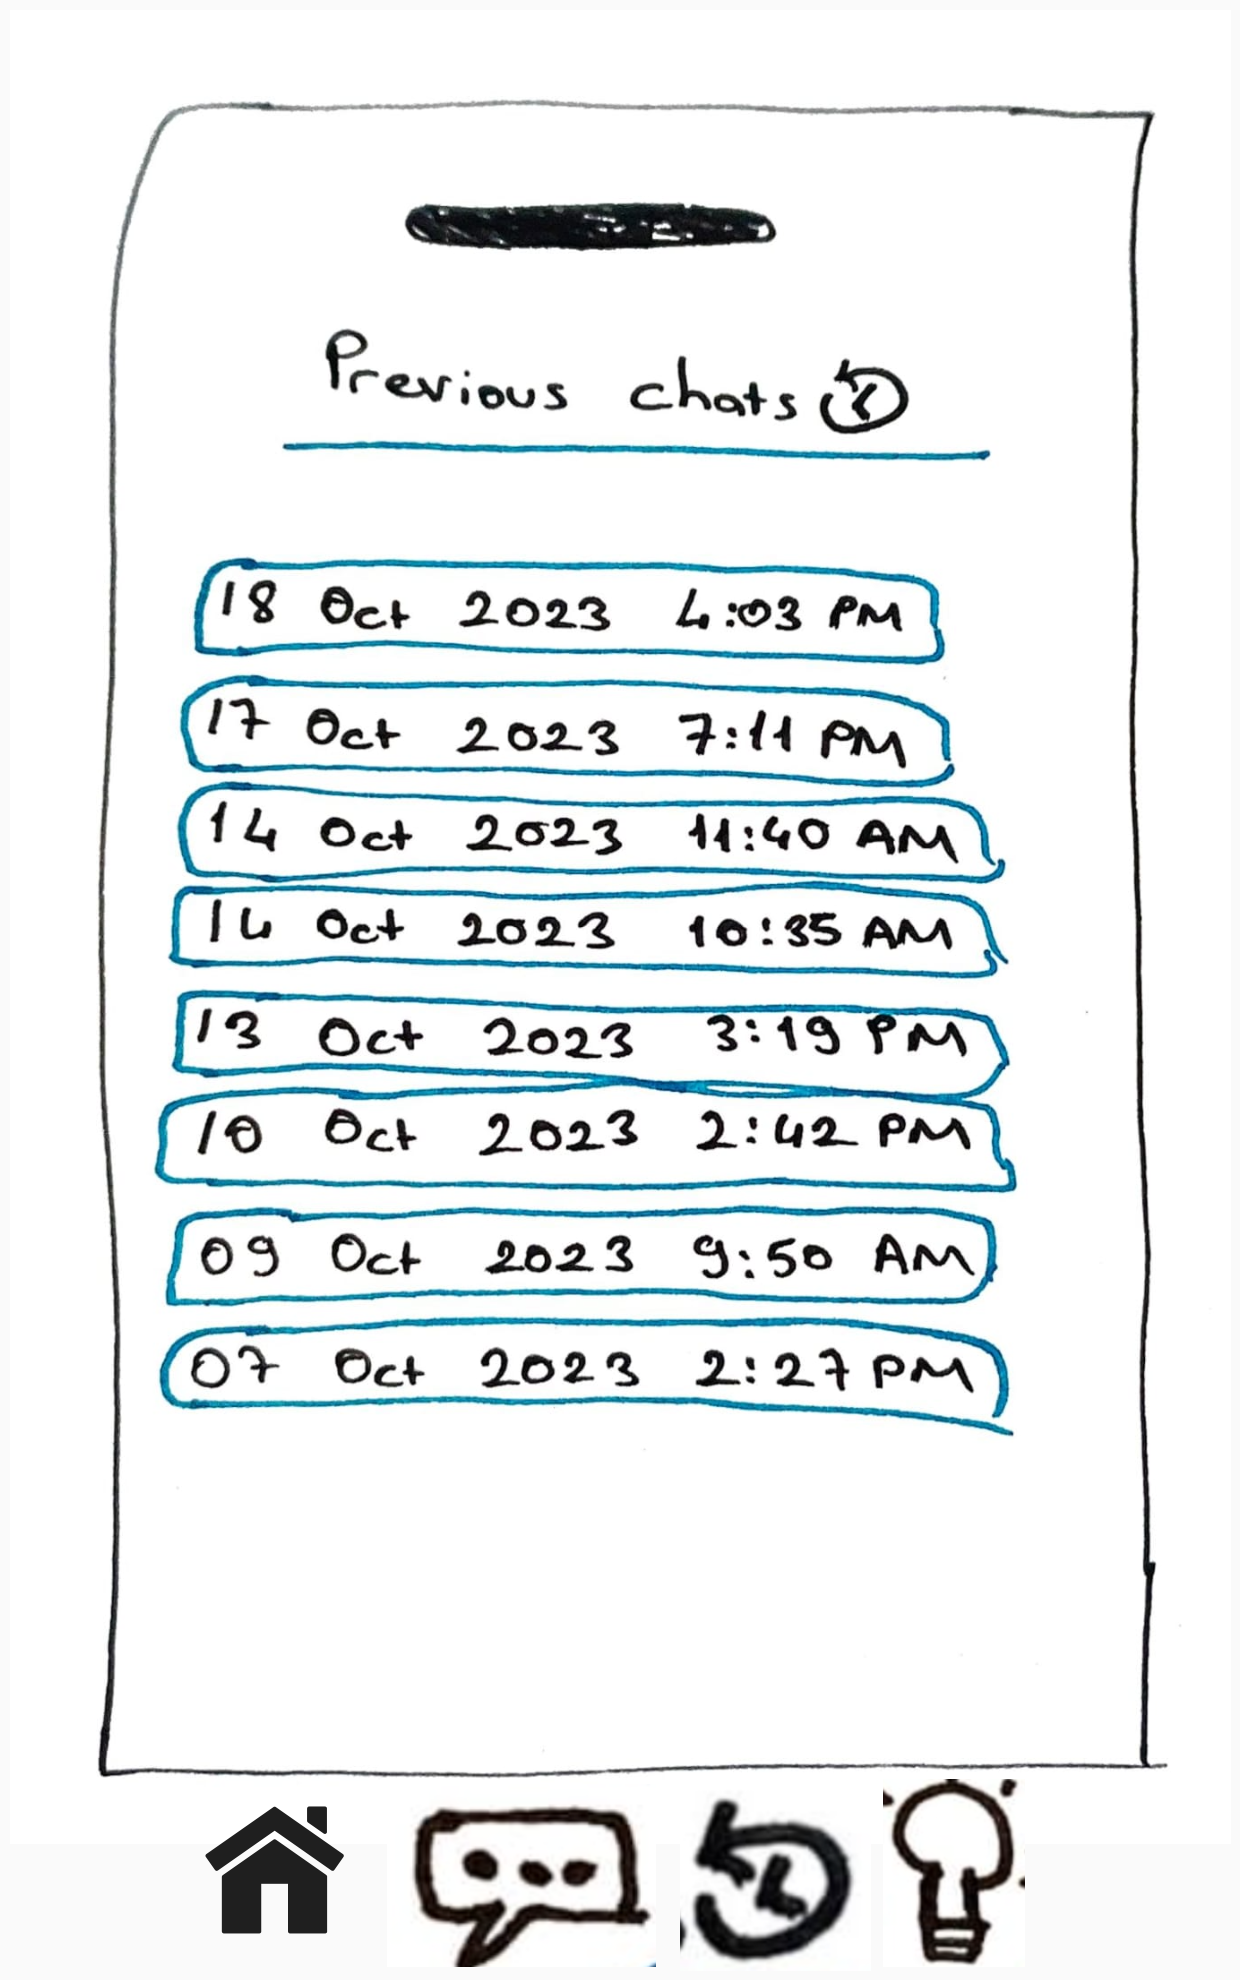 Previous chats
18 Oct 2023 4:03 PM
17 Oct 2023 7:11 PM
14 Oct 2023 11:40 AM
14 Oct 2023 10:35 AM
13 Oct 2023 3:19 PM
10 Oct 2023 2:42 PM
09 Oct 2023 9:50 AM
07 Oct 2023 2:27 PM